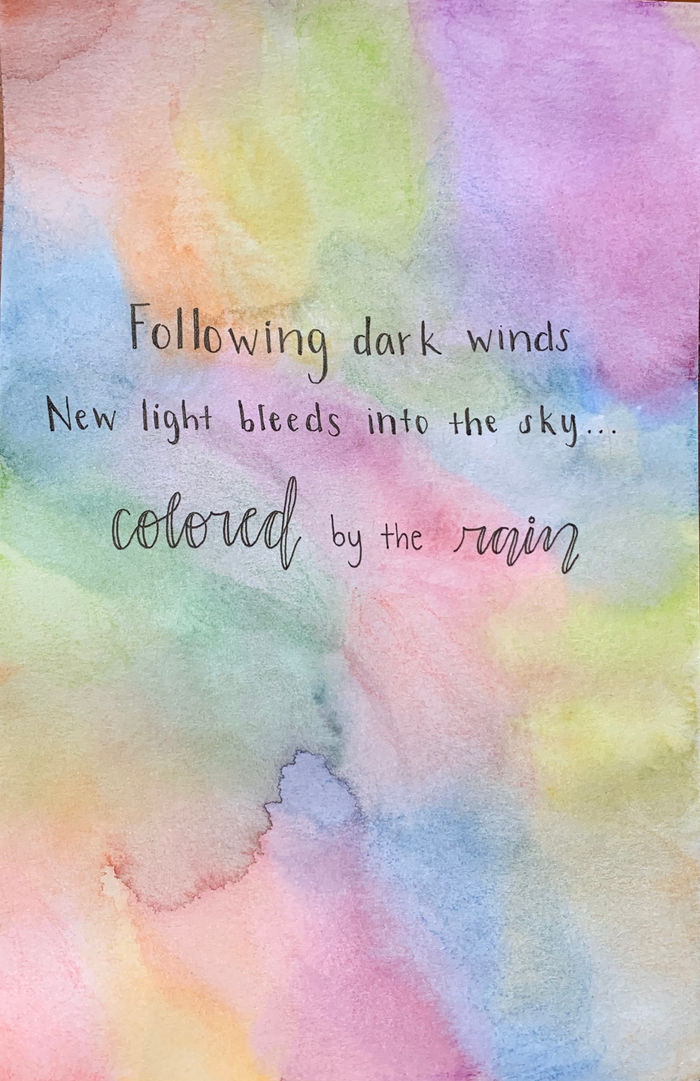 Following dark winds
New light bleeds into the sky...
colored by the rain